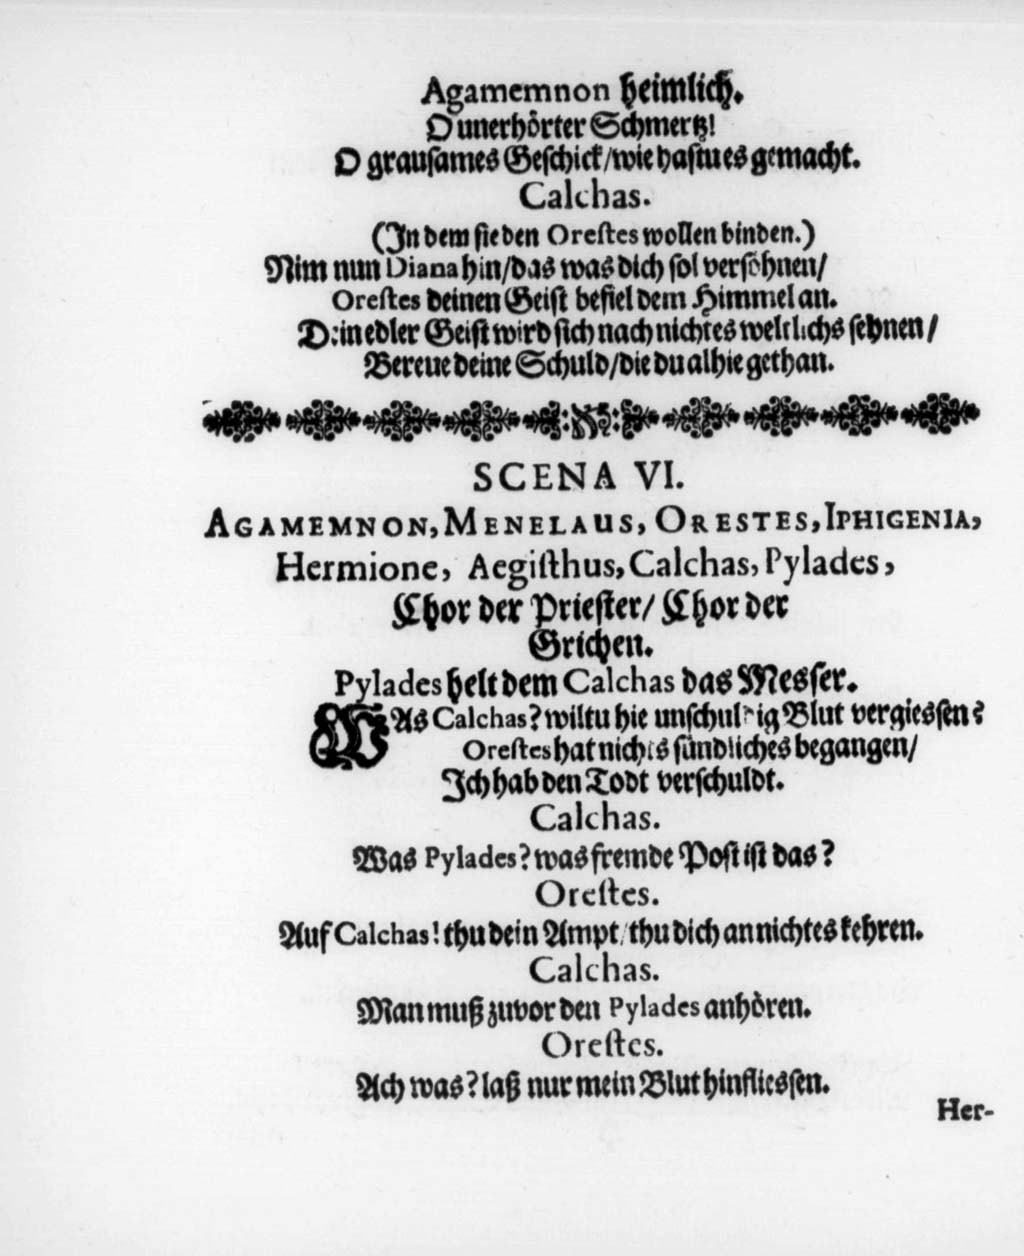 Agamemnon heimlich.
O unerhörter Schmertz!
O grausames Geschick/wie hastu es gemacht.
Calchas.
(In dem sie den Orestes wollen binden.)
Nim nun Diana hin/das was dich sol versöhnen/
Orestes deinen Geist befiel dem Himmel an.
Dein edler Geist wird sich nach nichtes weltlichs sehnen/
Bereue deine Schuld/die du alhie gethan.
SCENA VI.
AGAMEMNON, MENELAUS, ORESTES, IPHIGENIA,
Hermione, Aegisthus, Calchas, Pylades,
Chor der Priester/ Chor der
Grichen.
Pylades helt dem Calchas das Messer.
WAs Calchas? wiltu hie unschuldig Blut vergiessen?
Orestes hat nichts sündliches begangen/
Ich hab den Todt verschuldt.
Calchas.
Was Pylades? was fremde Post ist das?
Orestes.
Auf Calchas! thu dein Ampt/thu dich an nichtes kehren.
Calchas.
Man muß zuvor den Pylades anhören.
Orestes.
Ach was? laß nur mein Blut hinfliessen.
Her-